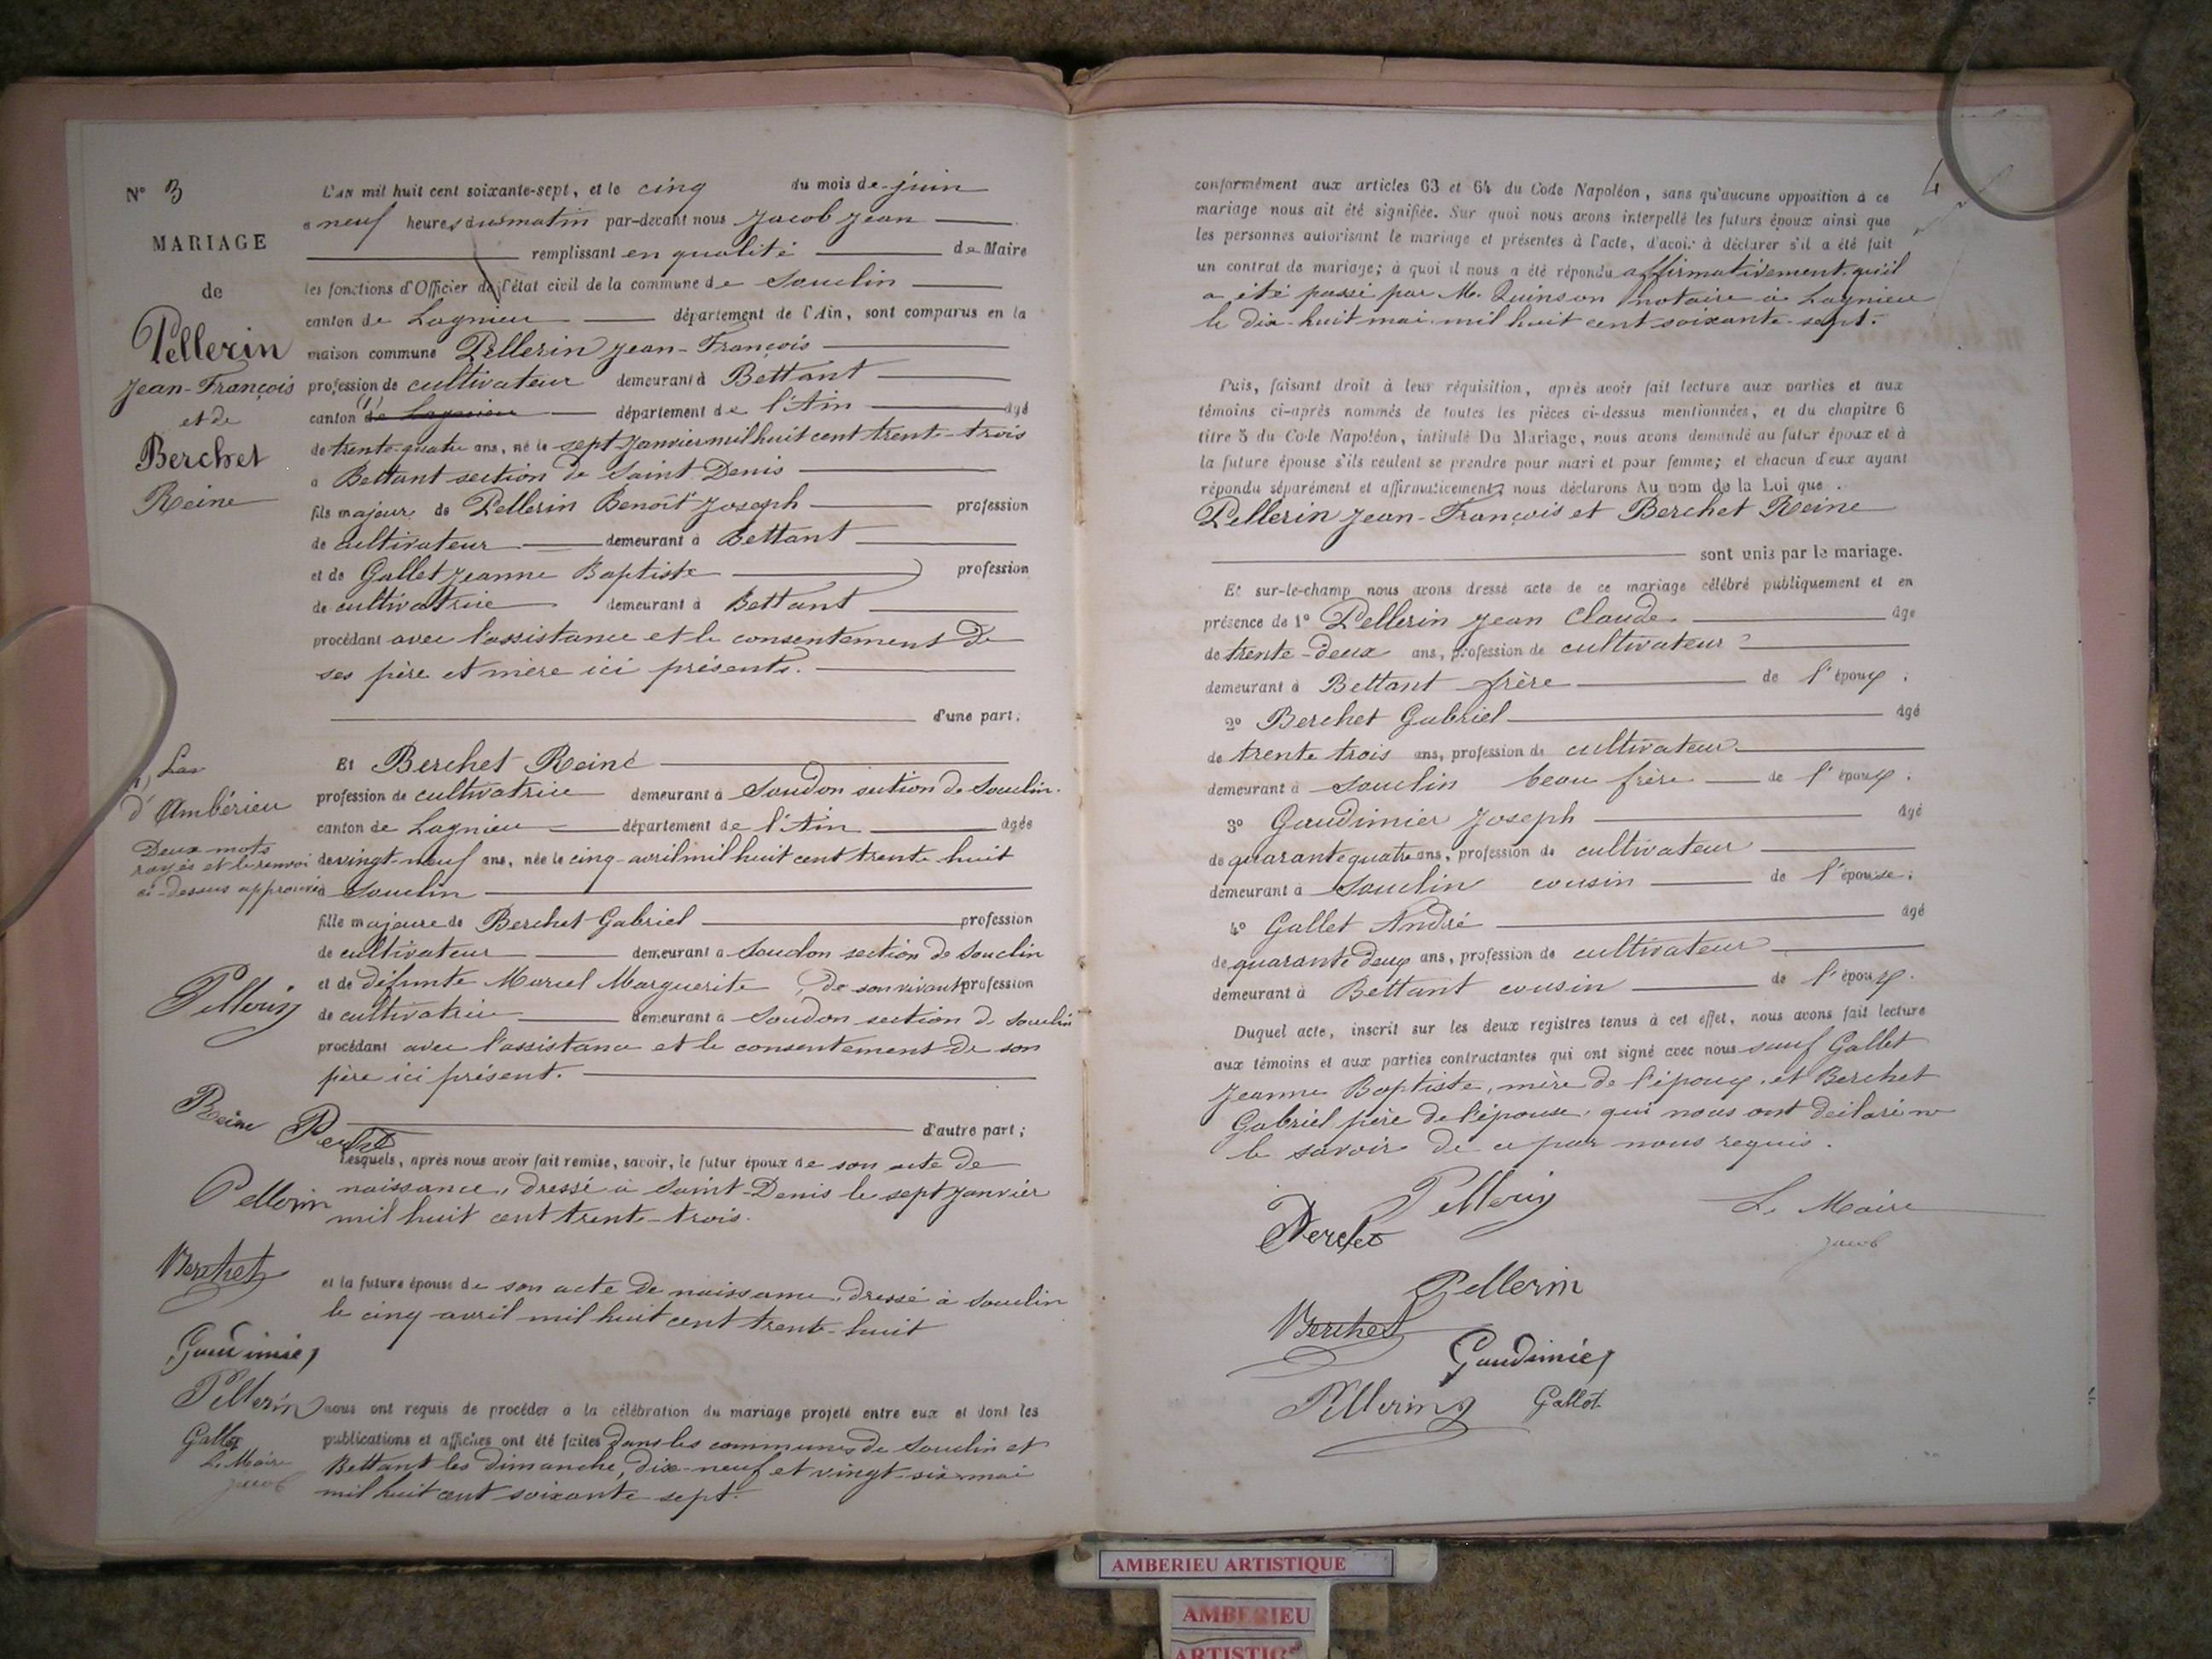 N° 3
MARIAGE
de
Pellerin
Jean-François
et de
Berchet
Reine
L'an mil huit cent soixante-sept, et le cinq du mois de juin
a neuf heures du matin par-devant nous Jacob Jean
remplissant en qualité de Maire
les fonctions d'Officier de l'état civil de la commune de Souclin
canton de Lagnieu département de l'Ain, sont comparus en la
maison commune Pellerin Jean-François
profession de cultivateur demeurant à Bettant
canton (1) de Lagnieu département de l'Ain âgé
de trente-quatre ans, né le sept janvier mil huit cent trente-trois
à Bettant section de Saint Denis
fils majeur de Pellerin Benoît Joseph profession
de cultivateur demeurant à Bettant
et de Gallet Jeanne Baptiste profession
de cultivatrice demeurant à Bettant
procédant avec l'assistance et le consentement de
ses père et mère ici présents.
d'une part;
Et Berchet Reine
profession de cultivatrice demeurant à Soudon section de Souclin.
canton de Lagnieu département de l'Ain âgée
de vingt-neuf ans, née le cinq avril mil huit cent trente huit
à Souclin
fille majeure de Berchet Gabriel profession
de cultivateur demeurant à Soudon section de Souclin
et de défunte Marcel Marguerite, de son vivant profession
de cultivatrice demeurant à Soudon section de Souclin
procédant avec l'assistance et le consentement de son
père ici présent.
d'autre part;
Lesquels, après nous avoir fait remise, savoir, le futur époux de son acte de
naissance, dressé à Saint-Denis le sept janvier
mil huit cent trente-trois.
et la future épouse de son acte de naissance, dressé à Souclin
le cinq avril mil huit cent trente-huit
nous ont requis de procéder à la célébration du mariage projeté entre eux et dont les
publications et affiches ont été faites dans les communes de Souclin et
Bettant les dimanche, dix-neuf et vingt-six mai
mil huit cent soixante sept.
d'Ambérieu
Deux mots
rayés et le renvoi
ci-dessus approuvés
Pellerin
Reine Berchet
Pellerin
Berchet
Gaudimier
Pellerin
Gallet
Le Maire
Jacob
4
conformément aux articles 63 et 64 du Code Napoléon, sans qu'aucune opposition à ce
mariage nous ait été signifiée. Sur quoi nous avons interpellé les futurs époux ainsi que
les personnes autorisant le mariage et présentes à l'acte, d'avoir à déclarer s'il a été fait
un contrat de mariage; à quoi il nous a été répondu affirmativement qu'il
a été passé par M. Quinson notaire à Lagnieu
le dix-huit mai mil huit cent soixante-sept.
Puis, faisant droit à leur réquisition, après avoir fait lecture aux parties et aux
témoins ci-après nommés de toutes les pièces ci-dessus mentionnées, et du chapitre 6
titre 5 du Code Napoléon, intitulé Du Mariage, nous avons demandé au futur époux et à
la future épouse s'ils veulent se prendre pour mari et pour femme; et chacun d'eux ayant
répondu séparément et affirmativement, nous déclarons Au nom de la Loi que
Pellerin Jean-François et Berchet Reine
sont unis par le mariage.
Et sur-le-champ nous avons dressé acte de ce mariage célébré publiquement et en
présence de 1° Pellerin Jean Claude âgé
de trente-deux ans, profession de cultivateur
demeurant à Bettant frère de l'époux;
2° Berchet Gabriel âgé
de trente trois ans, profession de cultivateur
demeurant à Souclin beau frère de l'époux;
3° Gaudimier Joseph âgé
de quarante quatre ans, profession de cultivateur
demeurant à Souclin cousin de l'épouse;
4° Gallet André âgé
de quarante deux ans, profession de cultivateur
demeurant à Bettant cousin de l'époux.
Duquel acte, inscrit sur les deux registres tenus à cet effet, nous avons fait lecture
aux témoins et aux parties contractantes qui ont signé avec nous sauf Gallet
Jeanne Baptiste, mère de l'époux, et Berchet
Gabriel père de l'épouse, qui nous ont déclaré ne
le savoir de ce par nous requis.
Pellerin
Le Maire
Berchet
Jacob
Pellerin
Berchet
Gaudimier
Pellerin
Gallet
AMBERIEU ARTISTIQUE
AMBERIEU